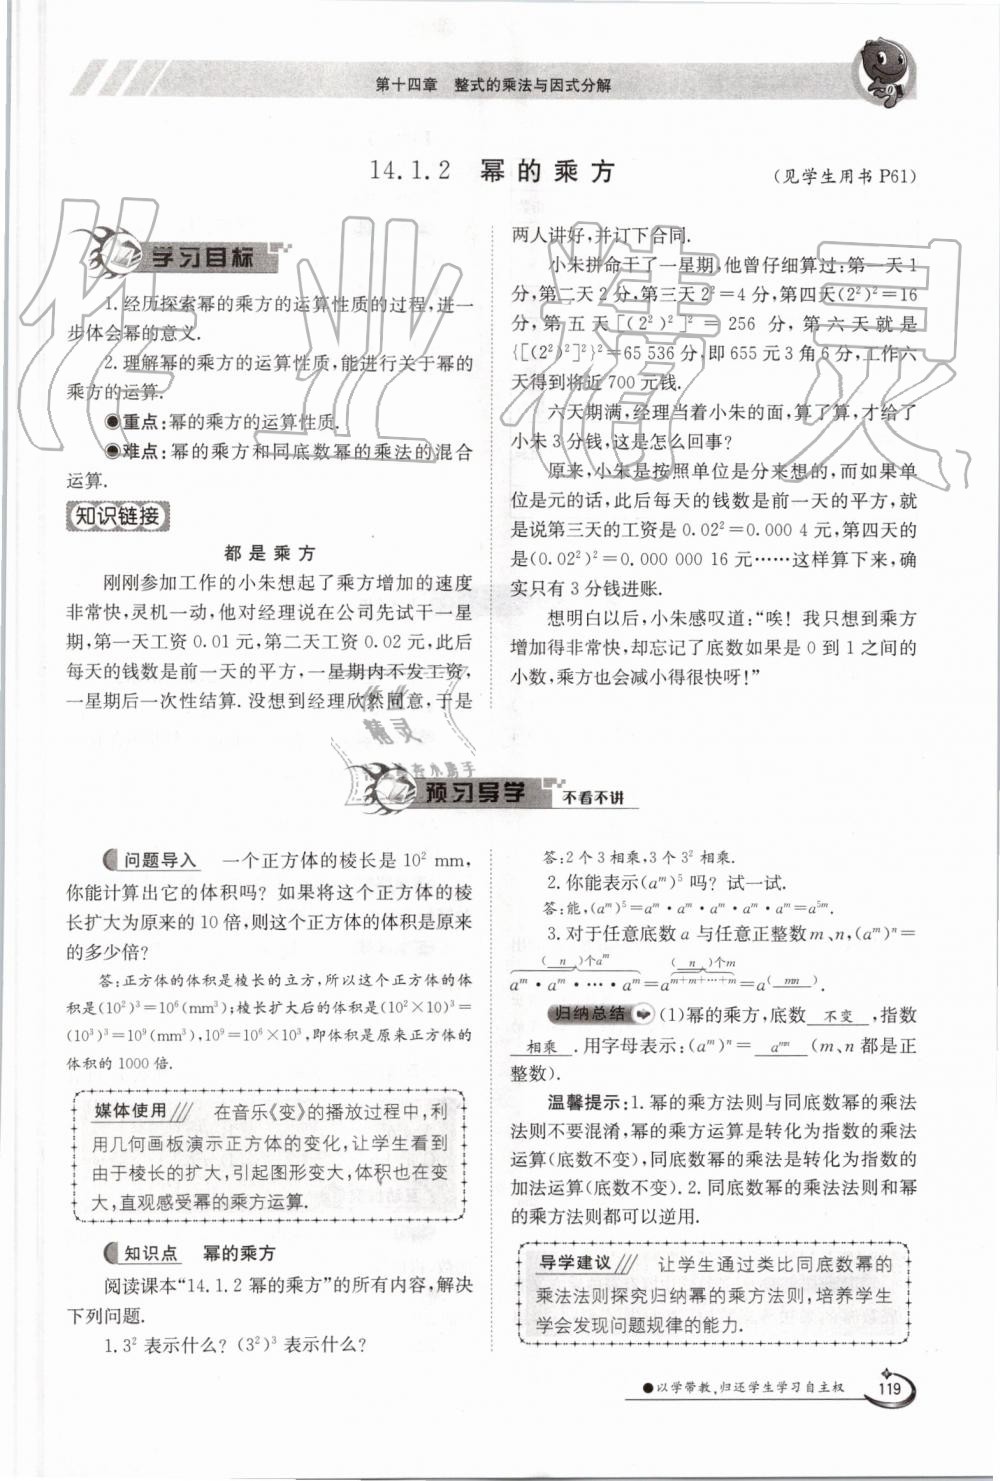 第十四章 整式的乘法与因式分解
14.1.2 幂的乘方
(见学生用书 P61)
学习目标
1. 经历探索幂的乘方的运算性质的过程,进一
步体会幂的意义.
2. 理解幂的乘方的运算性质,能进行关于幂的
乘方的运算.
●重点:幂的乘方的运算性质.
●难点:幂的乘方和同底数幂的乘法的混合
运算.
知识链接
都是乘方
刚刚参加工作的小朱想起了乘方增加的速度
非常快,灵机一动,他对经理说在公司先试干一星
期,第一天工资 0.01 元,第二天工资 0.02 元,此后
每天的钱数是前一天的平方,一星期内不发工资,
一星期后一次性结算. 没想到经理欣然同意,于是
两人讲好,并订下合同.
小朱拼命干了一星期,他曾仔细算过:第一天 1
分,第二天 2 分,第三天 2²=4 分,第四天(2²)²=16
分,第五天[(2²)²]²=256 分,第六天就是
{[(2²)²]²}²=65 536 分,即 655 元 3 角 6 分,工作六
天得到将近 700 元钱.
六天期满,经理当着小朱的面,算了算,才给了
小朱 3 分钱,这是怎么回事?
原来,小朱是按照单位是分来想的,而如果单
位是元的话,此后每天的钱数是前一天的平方,就
是说第三天的工资是 0.02²=0.000 4 元,第四天的
是(0.02²)²=0.000 000 16 元……这样算下来,确
实只有 3 分钱进账.
想明白以后,小朱感叹道:“唉!我只想到乘方
增加得非常快,却忘记了底数如果是 0 到 1 之间的
小数,乘方也会减小得很快呀!”
作业精灵
作业
精灵
预习导学 不看不讲
问题导入 一个正方体的棱长是 10² mm,
你能计算出它的体积吗?如果将这个正方体的棱
长扩大为原来的 10 倍,则这个正方体的体积是原来
的多少倍?
答:正方体的体积是棱长的立方,所以这个正方体的体
积是(10²)³=10⁶(mm³);棱长扩大后的体积是(10²×10)³=
(10³)³=10⁹(mm³),10⁹=10⁶×10³,即体积是原来正方体的
体积的 1000 倍.
媒体使用 在音乐《变》的播放过程中,利
用几何画板演示正方体的变化,让学生看到
由于棱长的扩大,引起图形变大,体积也在变
大,直观感受幂的乘方运算.
知识点 幂的乘方
阅读课本“14.1.2 幂的乘方”的所有内容,解决
下列问题.
1. 3² 表示什么?(3²)³ 表示什么?
答:2 个 3 相乘,3 个 3² 相乘.
2. 你能表示(aᵐ)⁵ 吗?试一试.
答:能,(aᵐ)⁵=aᵐ·aᵐ·aᵐ·aᵐ·aᵐ=a⁵ᵐ.
3. 对于任意底数 a 与任意正整数 m、n,(aᵐ)ⁿ=
( n )个aᵐ ( n )个m
aᵐ·aᵐ·…·aᵐ=a^(m+m+…+m)=a^( mn ).
归纳总结 (1)幂的乘方,底数 不变 ,指数
相乘 .用字母表示:(aᵐ)ⁿ= aᵐⁿ (m、n 都是正
整数).
温馨提示:1. 幂的乘方法则与同底数幂的乘法
法则不要混淆,幂的乘方运算是转化为指数的乘法
运算(底数不变),同底数幂的乘法是转化为指数的
加法运算(底数不变). 2. 同底数幂的乘法法则和幂
的乘方法则都可以逆用.
导学建议 让学生通过类比同底数幂的
乘法法则探究归纳幂的乘方法则,培养学生
学会发现问题规律的能力.
●以学带教,归还学生学习自主权 119